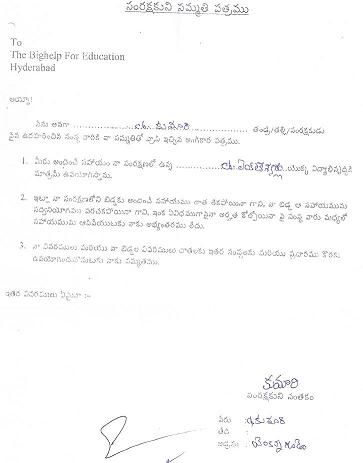 సంరక్షకుని సమ్మతి పత్రము
To
The Bighelp For Education
Hyderabad
అయ్యా!
నేను అనగా ........ కుమారి ........ తండ్రి/తల్లి/సంరక్షకుడు
పైన ఉదహరించిన సంస్థ వారికి నా సమ్మతితో వ్రాసి ఇచ్చిన అంగీకార పత్రము.
1. మీరు అందించే సహాయం నా సంరక్షణలో ఉన్న ........ యొక్క విద్యాభివృద్ధికి
మాత్రమే ఉపయోగిస్తాము.
2. ఇట్లా నా సంరక్షణలోని బిడ్డకు అందించే సహాయము గాని, నా బిడ్డ ఆ సహాయమును
సద్వినియోగము పరచకపోయినా గాని, ఇంక ఏవిధముగానైనా అర్హత కోల్పోయినా పై సంస్థ వారు మధ్యలో
సహాయమును ఆపివేయుటకు నాకు అభ్యంతరము లేదు.
3. నా వివరములు మరియు నా బిడ్డల వివరములు ఇతర సంస్థలకు మరియు ప్రచారము కొరకు
ఉపయోగించుకొనుటకు నాకు సమ్మతము.
ఇతర వివరములు ఏమైనా :-
కుమారి
సంరక్షకుని సంతకం
పేరు : కుమారి
తేది :
అడ్రసు :